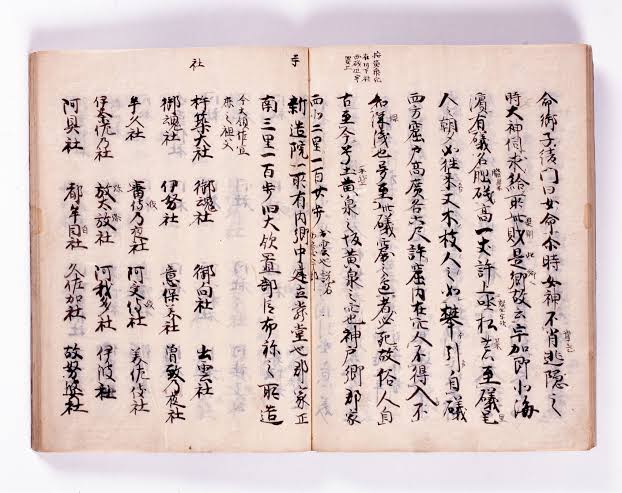 社
寺
命御子綾門日女命尒時女神不肯逃隠之
時大神伺求給所此則是郷故云宇加即北海
濱有礒名脳礒高一丈許上生松芸至礒邑
人之朝夕如往来又木枝人之如攀引自礒
西方窟戸高廣各六尺許窟内在穴人不得入不
知深浅也夢至此礒窟之邊者必死故俗人自
古至今号云黄泉之坂黄泉之穴也神戸郷郡家
西北二里一百廿歩 出雲也説名
新造院一所有内郷中建立嚴堂也郡家正
南三里一百歩旧大領置部臣布祢之所造
今大領佐宜
麻之祖父
杵築大社 御魂社 御向社 出雲社
御魂社 伊努社 意保美社 曽致乃夜社
牟久社 審伎乃夜社 阿受伎社 美佐伎社
伊奈佐乃社 阿我多社 伊波社
阿具社 都牟自社 久佐加社 故努婆社